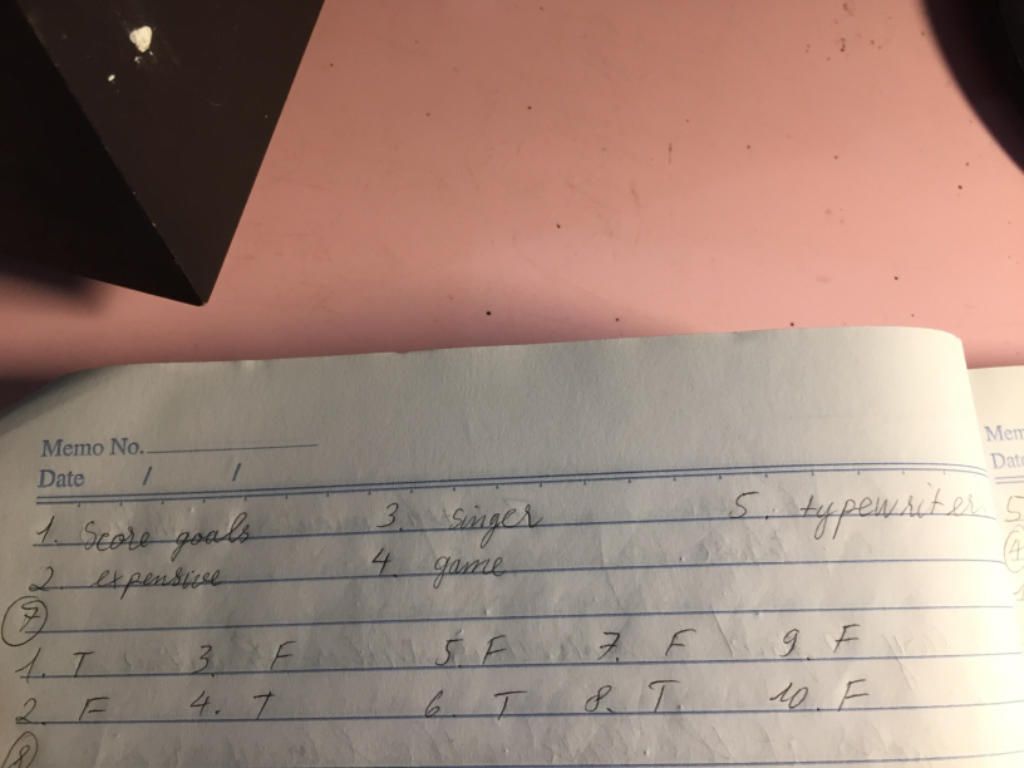 Memo No.
Date / /
1. Score goals 3. singer 5. typewriter
2. expensive 4. game
7
1. T 3. F 5. F 7. F 9. F
2. F 4. T 6. T 8. T. 10. F
8
Mem
Date
5
4